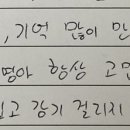 , 기억 많이 만
명아 항상 고면
고 감기 걸리지